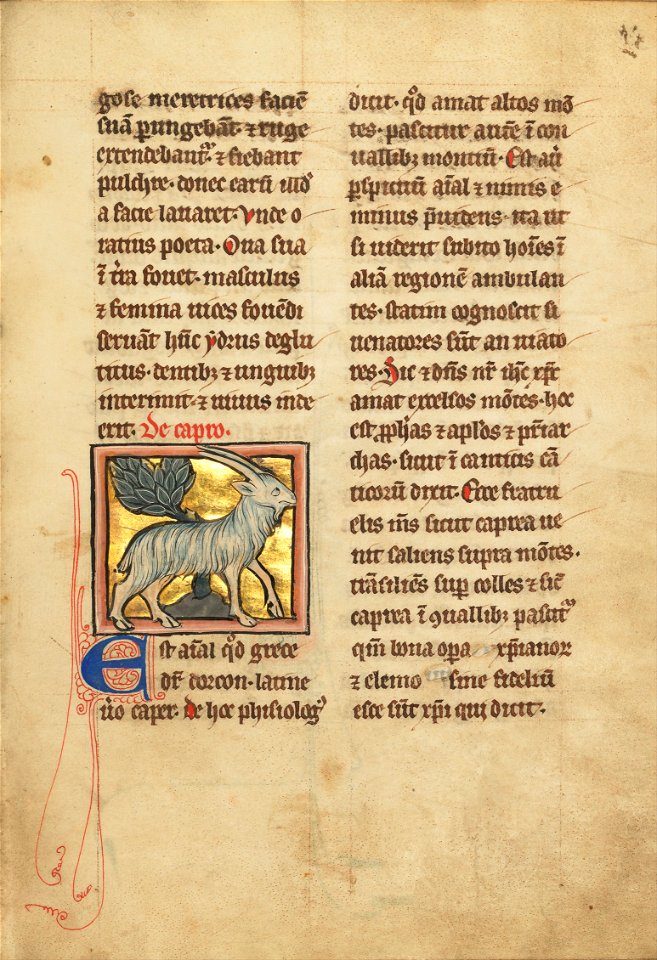 gose meretrices faciē
suā ꝑungebāt ⁊ ruge
extendebant᷑ ⁊ fiebant
pulchre· donec earū sud᷑
a facie lavaret· Vnde o
ratius poeta· Ova sua
ī t͛ra fovet· masculus
⁊ femina vices fovēdi
servāt hūc ydrus deglu
titus· dentibꝫ ⁊ unguibꝫ
interimit ⁊ vivus inde
exit· De capro·
Est aīal qd̄ grece
dr̄ dorcon· latine
ůo caper· de hoc phisiologꝰ
dicit· qd̄ amat altos mō
tes· pascitur autē ī con
vallibꝫ montiū· Est aū
ꝑspicuū aīal ⁊ nimis e
minus p̄videns· ita ut
si viderit subito hoīes ī
aliā regionē ambulan
tes· statim cognoscit si
venatores sūt an viato
res· Sic ⁊ dn̄s nr̄ ihc̄ xp̄c
amat excelsos mōtes· hoc
est ꝓph̄as ⁊ apl̄os ⁊ pr̄iar
chas· sicut ī canticis cā
ticorū dicit· Ecce fratru
elis m̄s sicut caprea ve
nit saliens supra mōtes·
trāsiliēs suꝑ colles ⁊ sic̄
caprea ī ꝯvallibꝫ pascit᷑
qm̄ bona oꝑa xp̄ianor
⁊ elemo sine fideliū
esce sūt xp̄i qui dicit·